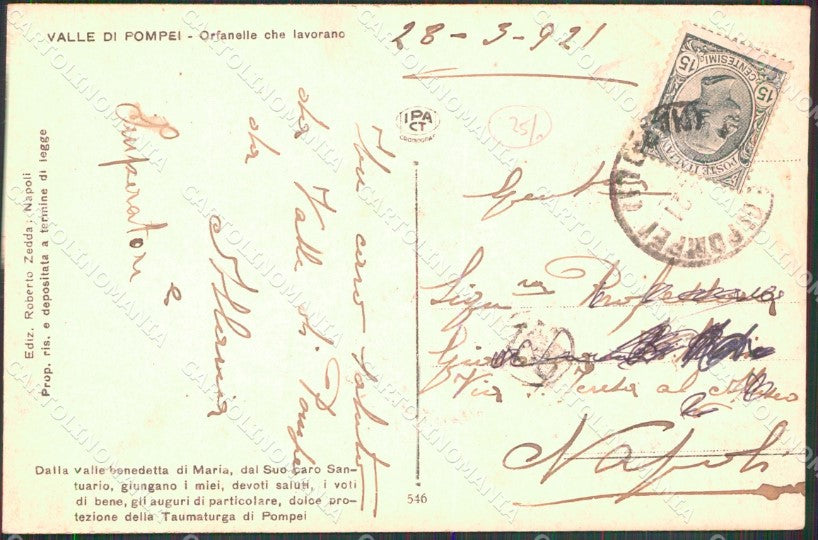 VALLE DI POMPEI - Orfanelle che lavorano
28-3-921
Un caro saluto
da Valle di Pompei
da
Imperatori
e
Ediz. Roberto Zedda - Napoli
Prop. ris. e depositata a termine di legge
Dalla valle benedetta di Maria, dal Suo caro San-
tuario, giungano i miei, devoti saluti, i voti
di bene, gli auguri di particolare, dolce pro-
tezione della Taumaturga di Pompei
IPA
CT
25/
546
15 CENTESIMI 15
POSTE ITALIANE
POMPEI
Gent.
Sig.na
Via S. Teresa al Museo
Napoli
CARTOLINOMANIA